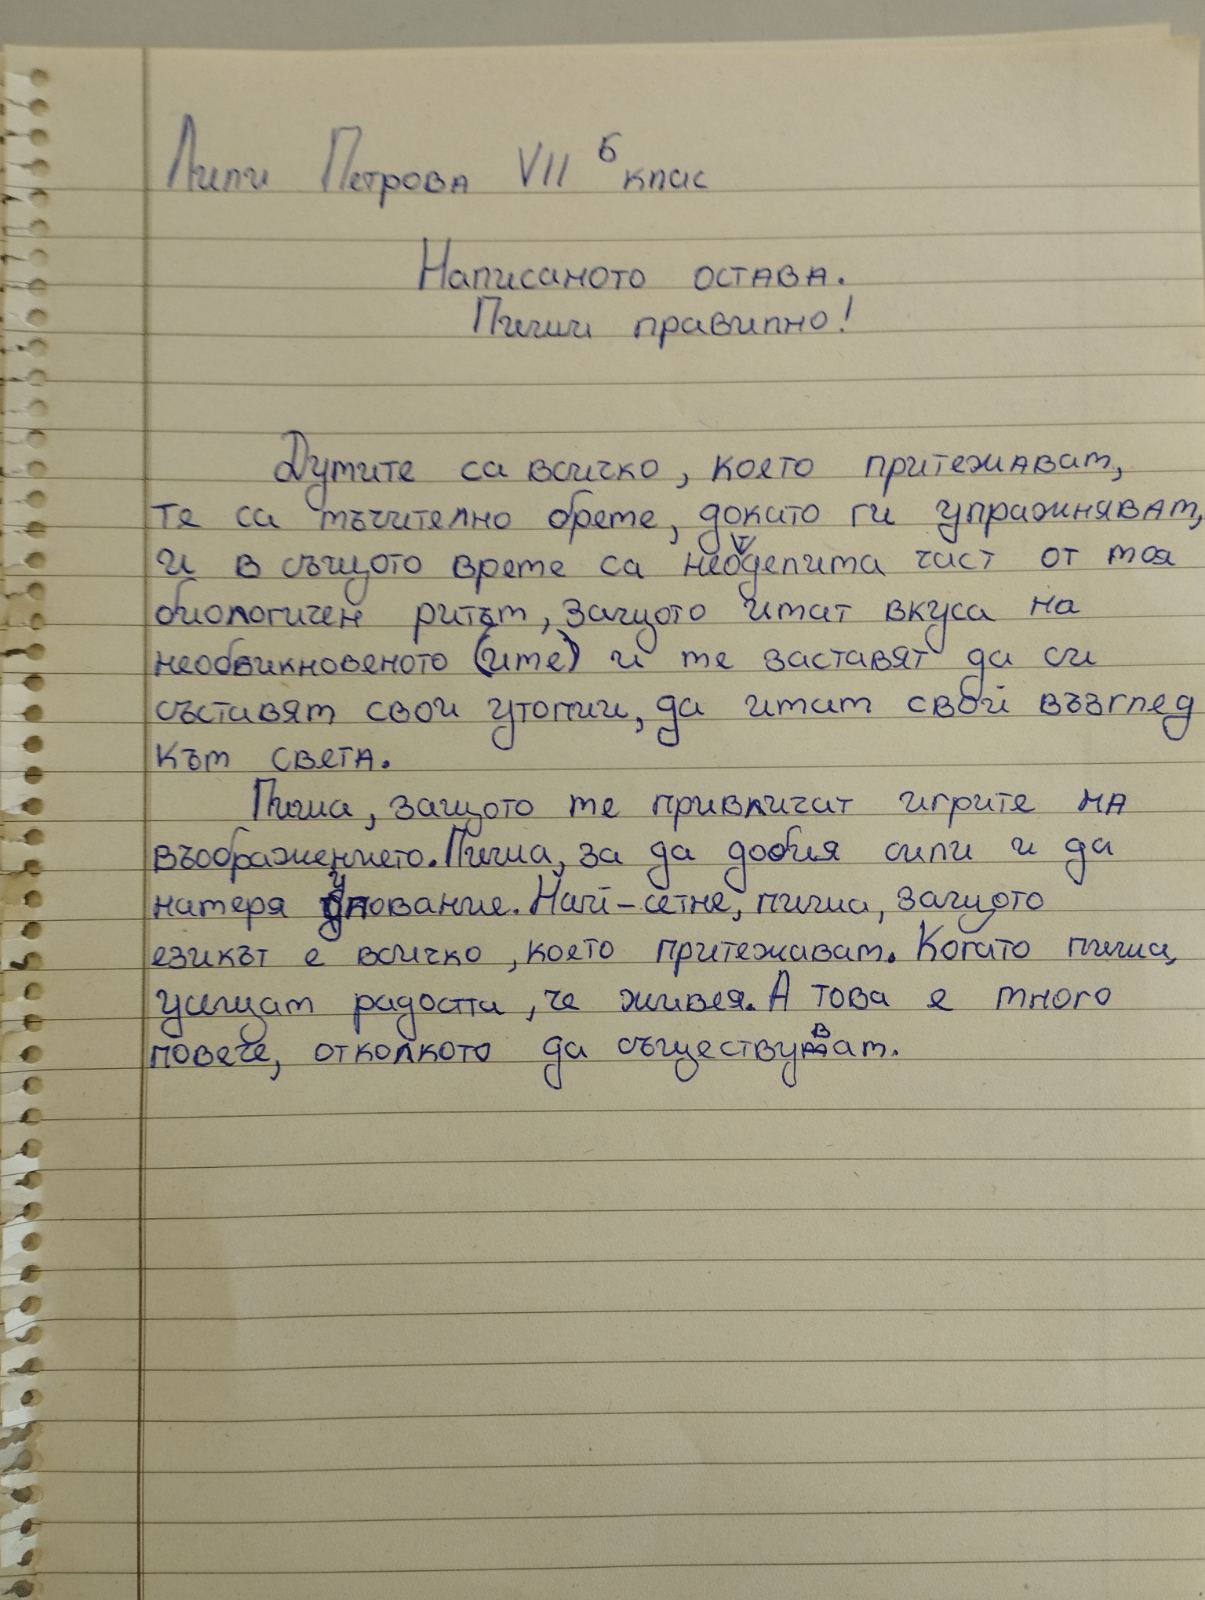 Лили Петрова VII б клас
Написаното остава.
Пиши правилно!
Думите са всичко, което притежавам,
те са мъчително бреме, докато ги упражнявам,
и в същото време са неотделима част от моя
биологичен ритъм, защото имат вкуса на
необикновеното (име) и ме заставят да си
съставям свои утопии, да имам свой възглед
към света.
Пиша, защото ме привличат игрите на
въображението. Пиша, за да добия сили и да
намеря упование. Най-сетне, пиша, защото
езикът е всичко, което притежавам. Когато пиша,
усещам радостта, че живея. А това е много
повече, отколкото да съществувам.